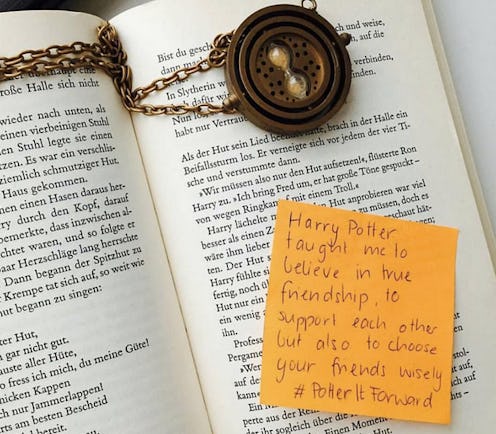 über eine
Große Halle sich nicht
wieder nach unten, als
einen vierbeinigen Stuhl
Stuhl legte sie einen
tzen. Es war ein verschlis-
ziemlich schmutziger Hut.
Haus gekommen.
einen Hasen daraus her-
rry durch den Kopf, darauf
bemerkte, dass inzwischen al-
chtet waren, und so folgte er
paar Herzschläge lang herrschte
Dann begann der Spitzhut zu
Krempe tat sich auf, so weit wie
t begann zu singen:
ter Hut,
n gar nicht gut.
aupte aller Hüte,
so fress ich mich, du meine Güte!
nicken Kappen
nur Jammerlappen!
rts am besten Bescheid
Bist du
und weise,
dann
auf die
In Slytherin
verbinden,
doch dafür
Nun los
habt nur Vertrauen
Als der Hut sein Lied beendet hatte, brach in der Halle ein
Beifallssturm los. Er verneigte sich vor jedem der vier Ti-
sche und verstummte dann.
»Wir müssen also nur den Hut aufsetzen!«, flüsterte Ron
Harry zu. »Ich bring Fred um, er hat große Töne gespuckt –
von wegen Ringkampf mit einem Troll.«
Harry lächelte
Hut anprobieren war viel
besser als einen
zu müssen, doch es
wäre ihm lieber
Der Hut
Harry fühlte
fertig, noch
Hut nur ein
ein wenig
ihn.
Profes
Pergame
»Wenn
Harry Potter
taught me to
believe in true
friendship, to
support each other
but also to choose
your friends wisely
# PotterItForward
perte aus der Reihe
den Hut auf, der ihr sogleich über die Augen